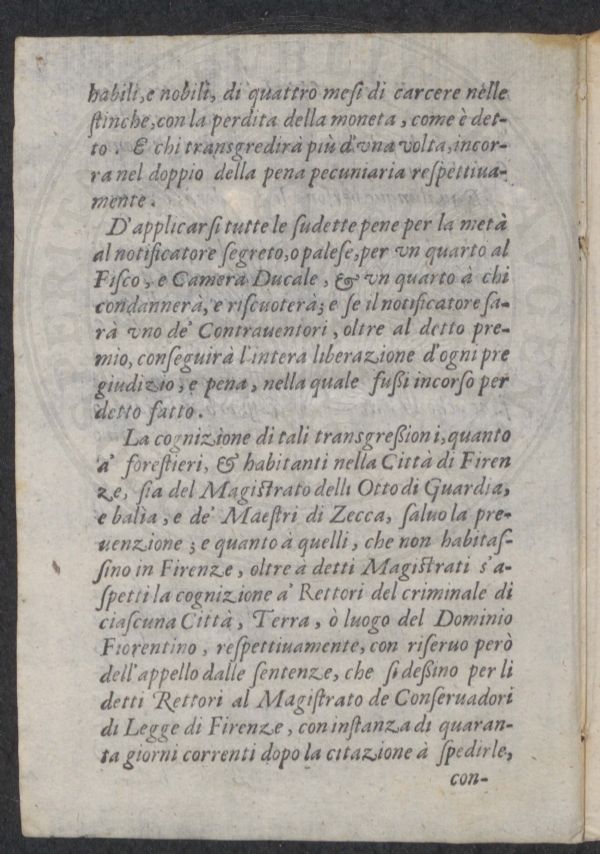 habili, e nobili, di quattro mesi di carcere nelle
stinche, con la perdita della moneta, come è det-
to. E chi transgredirà più d'vna volta, incor-
ra nel doppio della pena pecuniaria respettiua-
mente.
D'applicarsi tutte le sudette pene per la metà
al notificatore segreto, o palese, per vn quarto al
Fisco, e Camera Ducale, & vn quarto à chi
condannerà, e riscuoterà; e se il notificatore sa-
rà vno de' Contrauentori, oltre al detto pre-
mio, conseguirà l'intera liberazione d'ogni pre
giudizio, e pena, nella quale fussi incorso per
detto fatto.
La cognizione di tali transgressioni, quanto
a' forestieri, & habitanti nella Città di Firen
ze, sia del Magistrato delli Otto di Guardia,
e balìa, e de' Maestri di Zecca, saluo la pre-
uenzione; e quanto a quelli, che non habitas-
sino in Firenze, oltre a detti Magistrati s'a-
spetti la cognizione a' Rettori del criminale di
ciascuna Città, Terra, ò luogo del Dominio
Fiorentino, respettiuamente, con riseruo però
dell'appello dalle sentenze, che si dessino per li
detti Rettori al Magistrato de Conseruadori
di Legge di Firenze, con instanza di quaran-
ta giorni correnti dopo la citazione à spedirle,
con-